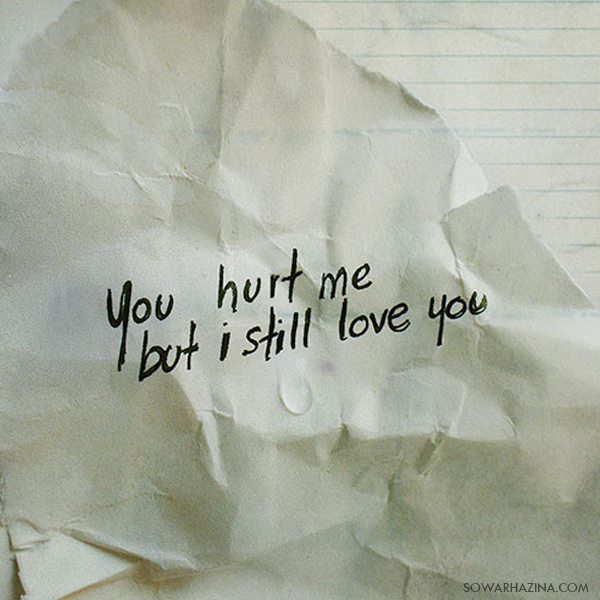 you hurt me
but i still love you
SOWARHAZINA.COM